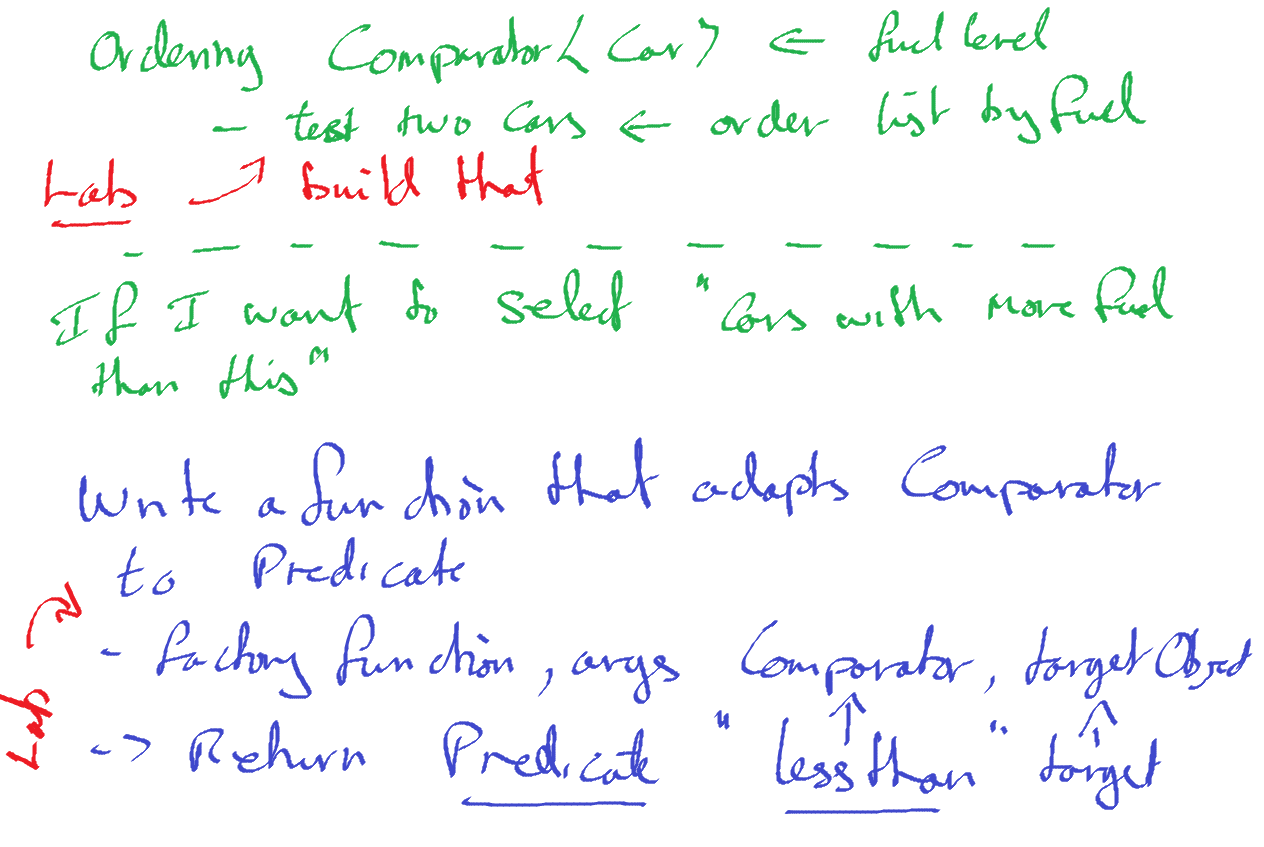 Ordering Comparator<Car> ← fuel level
- test two Cars ← order list by fuel
Lab → build that
If I want to select "Cars with more fuel
than this"
Write a function that adapts Comparator
to Predicate
- factory function, args Comparator, target Object
-> Return Predicate "less than" target
Lab